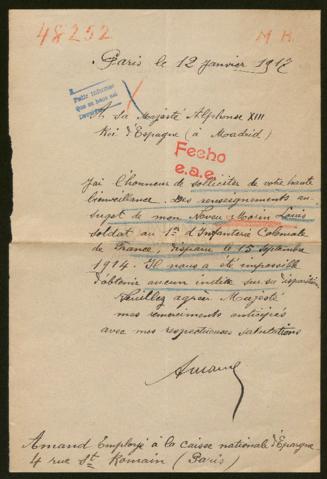 48252
M H
Paris le 12 Janvier 1917
A Sa Majesté Alphonse XIII
Roi d'Espagne (à Moadrid)
Fecho
e.a.e.
J'ai l'honneur de solliciter de votre haute
bienveillance. Des renseignements au
sugot de mon Neveu Morin Louis
soldat au 1er d'Infanterie Coloniale
de France, disparu le 15 septembre
1914. Il nous a été impossible
d'obtenir aucun indice sur sa disparition
Veuillez agréer Majesté
mes remerciments anticipés
avec mes respectueuses salutations
Amand
Amand Employé à la caisse nationale d'Epargne
4 rue St Romain (Paris)